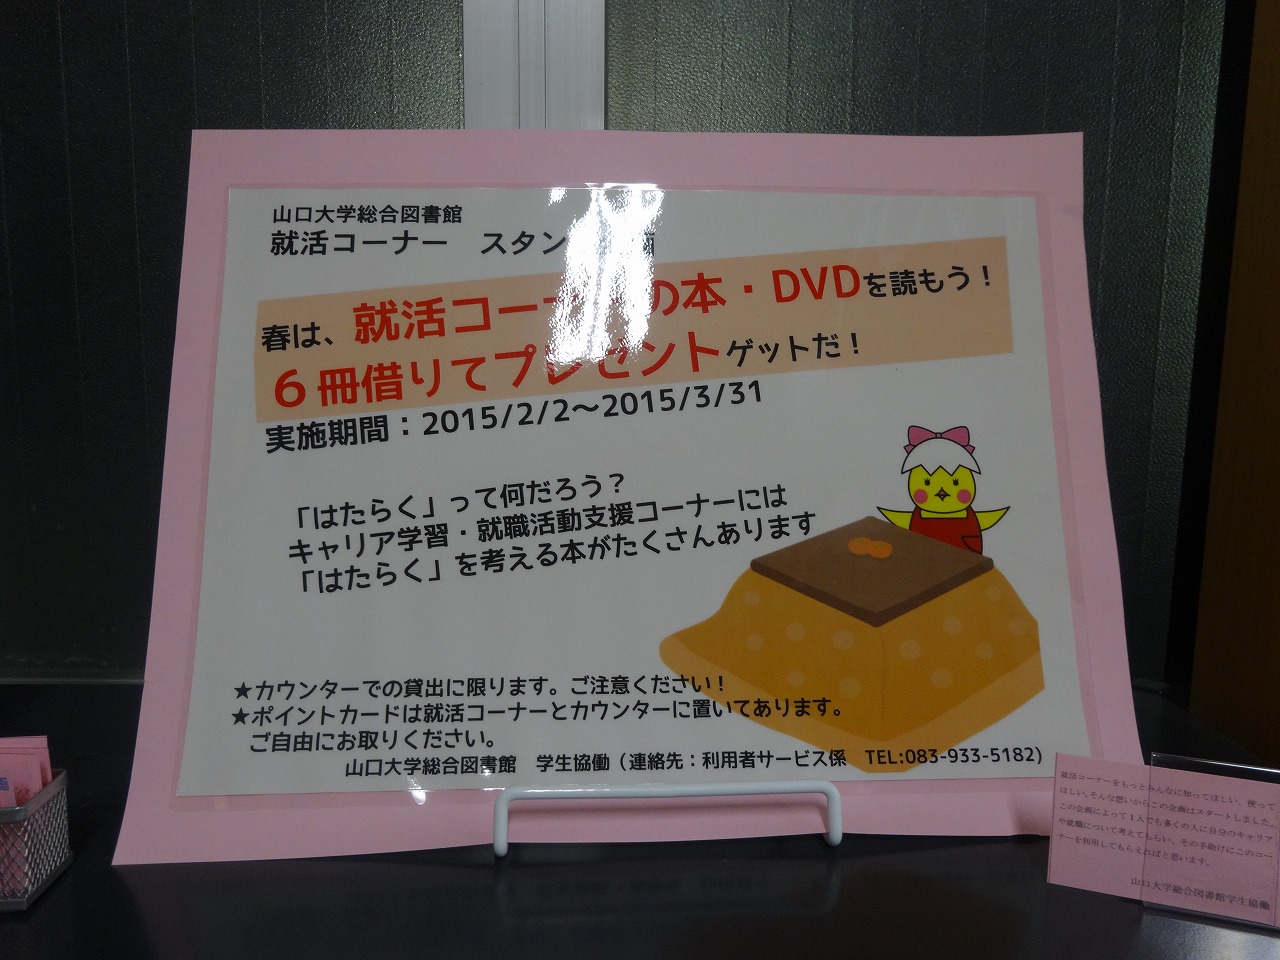 山口大学総合図書館
就活コーナー スタン
春は、就活コーナーの本・DVDを読もう！
６冊借りてプレゼントゲットだ！
実施期間：2015/2/2～2015/3/31
「はたらく」って何だろう？
キャリア学習・就職活動支援コーナーには
「はたらく」を考える本がたくさんあります
★カウンターでの貸出に限ります。ご注意ください！
★ポイントカードは就活コーナーとカウンターに置いてあります。
ご自由にお取りください。
山口大学総合図書館 学生協働（連絡先：利用者サービス係 TEL:083-933-5182)
就活コーナーをもっとみんなに知ってほしい、使って
ほしい。そんな想いからこの企画はスタートしました。
この企画によって１人でも多くの人に自分のキャリア
や就職について考えてもらい、その手助けにこのコー
ナーを利用してもらえればと思います。
山口大学総合図書館学生協働